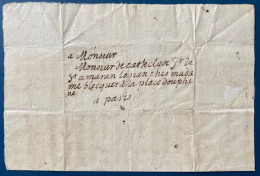 a Monsieur
Monsieur de cathelan Sr de
St amaran logeant ches mada
me blecquet a la place douphi
ne
a paris